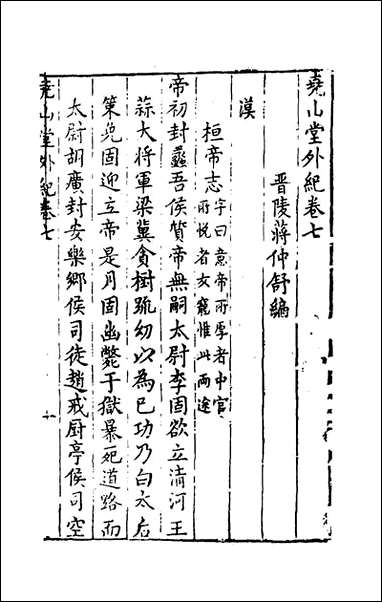 堯山堂外紀卷七
晋陵蔣仲舒編
漢
桓帝志字曰意帝所厚者中官
所悦者女寵惟此兩途
帝初封蠡吾侯質帝無嗣太尉李固欲立清河王
蒜大將軍梁冀貪樹疏幼以為己功乃白太后
策免固迎立帝是月固幽斃于獄暴死道路而
太尉胡廣封安樂鄉侯司徒趙戒厨亭侯司空
堯山堂外紀卷七